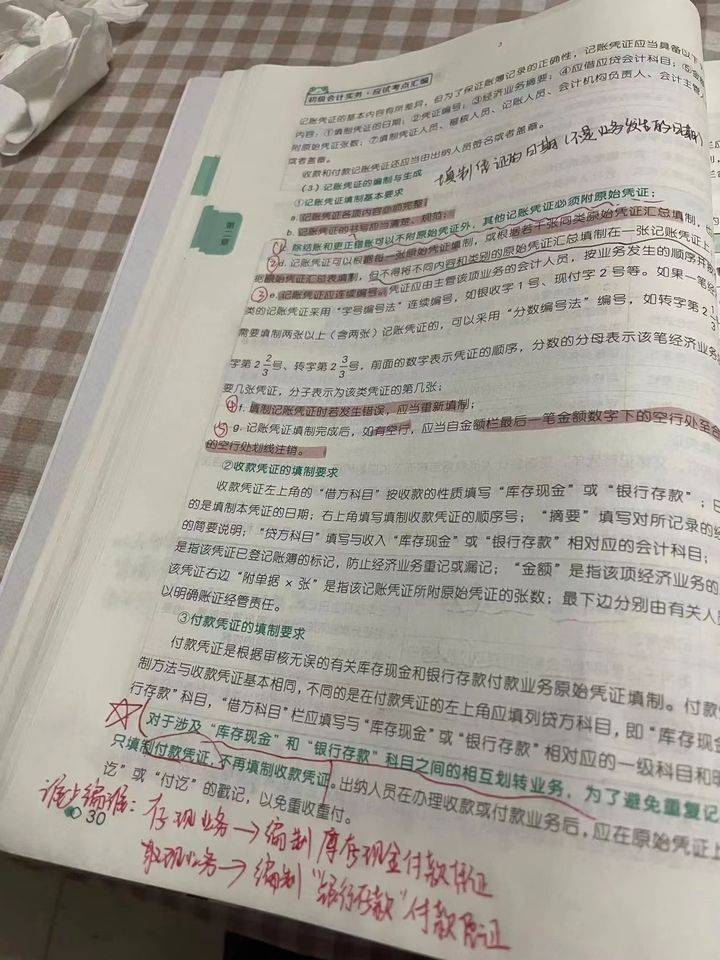 初级会计实务·应试考点汇编
记账凭证的基本内容有所差异，但为了保证账簿记录的正确性，记账凭证应当具备以下
内容：①填制凭证的日期；②凭证编号；③经济业务摘要；④应借应贷会计科目；⑤金额
附原始凭证张数；⑦填制凭证人员、稽核人员、记账人员、会计机构负责人、会计主管人
或者盖章。
收款和付款记账凭证还应当由出纳人员签名或者盖章。
填制凭证的日期(不是业务发生的日期)
（3）记账凭证的编制与生成
①记账凭证填制基本要求
a. 记账凭证各项内容必须完整；
b. 记账凭证的书写应当清楚、规范；
① 除结账和更正错账可以不附原始凭证外，其他记账凭证必须附原始凭证；
② d. 记账凭证可以根据每一张原始凭证填制，或根据若干张同类原始凭证汇总填制，
把原始凭证汇总表填制，但不得将不同内容和类别的原始凭证汇总填制在一张记账凭证上
③ e. 记账凭证应连续编号。凭证应由主管该项业务的会计人员，按业务发生的顺序并
类的记账凭证采用“字号编号法”连续编号，如银收字1号、现付字2号等。如果一笔经
需要填制两张以上（含两张）记账凭证的，可以采用“分数编号法”编号，如转字第2 1/3
字第2 2/3号、转字第2 3/3号，前面的数字表示凭证的顺序，分数的分母表示该笔经济业务
要几张凭证，分子表示为该类凭证的第几张；
④ f. 填制记账凭证时若发生错误，应当重新填制；
⑤ g. 记账凭证填制完成后，如有空行，应当自金额栏最后一笔金额数字下的空行处至合
的空行处划线注销。
②收款凭证的填制要求
收款凭证左上角的“借方科目”按收款的性质填写“库存现金”或“银行存款”；日
的是填制本凭证的日期；右上角填写填制收款凭证的顺序号；“摘要”填写对所记录的经
的简要说明；“贷方科目”填写与收入“库存现金”或“银行存款”相对应的会计科目；
是指该凭证已登记账簿的标记，防止经济业务重记或漏记；“金额”是指该项经济业务的
该凭证右边“附单据×张”是指该记账凭证所附原始凭证的张数；最下边分别由有关人
以明确账证经管责任。
③付款凭证的填制要求
付款凭证是根据审核无误的有关库存现金和银行存款付款业务原始凭证填制。付款
制方法与收款凭证基本相同，不同的是在付款凭证的左上角应填列贷方科目，即“库存现金
行存款”科目，“借方科目”栏应填写与“库存现金”或“银行存款”相对应的一级科目和明
对于涉及“库存现金”和“银行存款”科目之间的相互划转业务，为了避免重复记
只填制付款凭证，不再填制收款凭证。出纳人员在办理收款或付款业务后，应在原始凭证上
讫”或“付讫”的戳记，以免重收重付。
30
谁少编谁：存现业务→编制库存现金付款凭证
取现业务→编制“银行存款”付款凭证
第二章